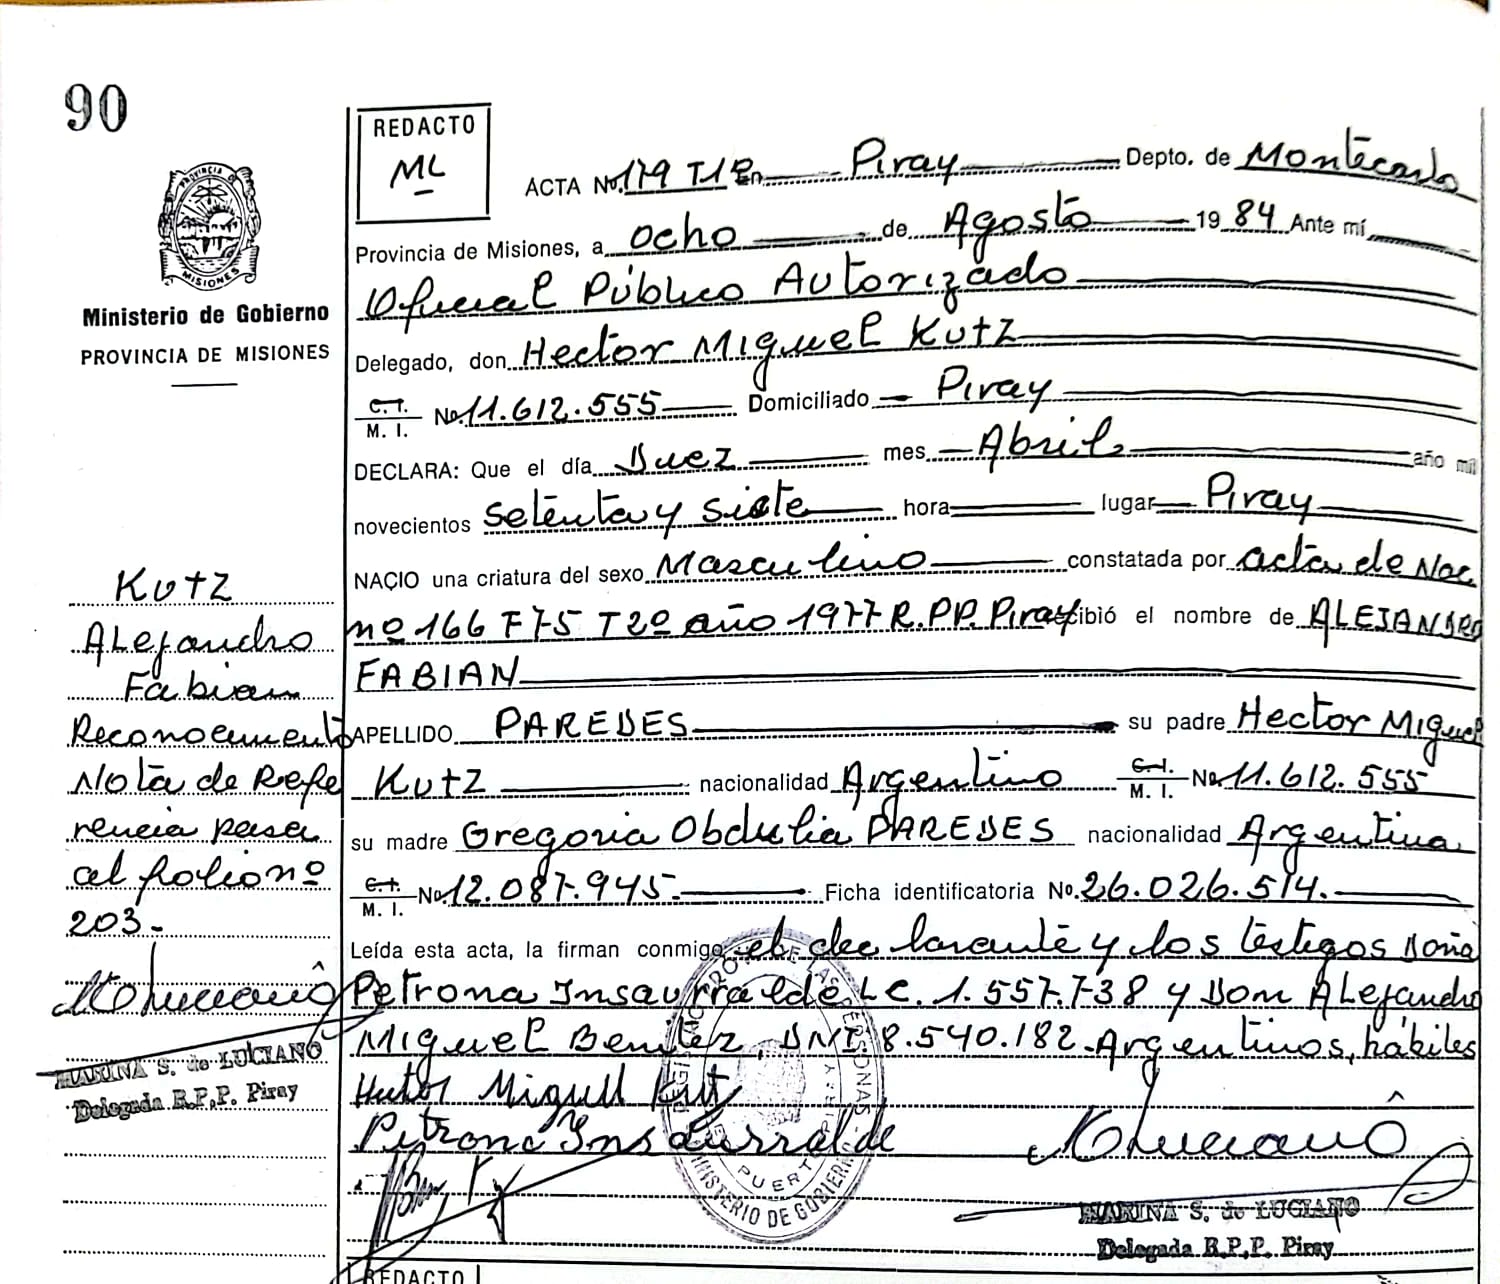 90
REDACTO
ML
ACTA No. 179 T1º En Piray Depto. de Montecarlo
Provincia de Misiones, a ocho de Agosto 1984 Ante mí,
Oficial Público Autorizado
Delegado, don Hector Miguel Kutz
C.I. M. I. No. 11.612.555 Domiciliado Piray
DECLARA: Que el día Diez mes Abril año mil
novecientos setenta y siete hora lugar Piray
NACIO una criatura del sexo Masculino constatada por acta de Nac
nº 166 F75 T2º año 1977 R.PP. Piray cibió el nombre de ALEJANDRO
FABIAN
APELLIDO PAREDES su padre Hector Miguel
Kutz nacionalidad Argentino C.I. M. I. No. 11.612.555
su madre Gregoria Obdulia PAREDES nacionalidad Argentina
C.I. M. I. No. 12.087.945. Ficha identificatoria No. 26.026.514.
Leída esta acta, la firman conmigo el declarante y los testigos Doña
Petrona Insaurralde LC. 1.557.738 y Don Alejandro
Miguel Benitez, DNI 8.540.182. Argentinos, hábiles
Hector Miguel Kut
Petrona Insaurralde
MARINA S. de LUCIANO
Delegada R.P.P. Piray
PROVINCIA
MISIONES
Ministerio de Gobierno
PROVINCIA DE MISIONES
Kutz
Alejandro
Fabian
Reconocimiento
Nota de Refe
rencia pasa
al folio nº
203.
MARINA S. de LUCIANO
Delegada R.P.P. Piray
DE LAS PERSONAS
MINISTERIO DE GOBIERNO
REDACTO